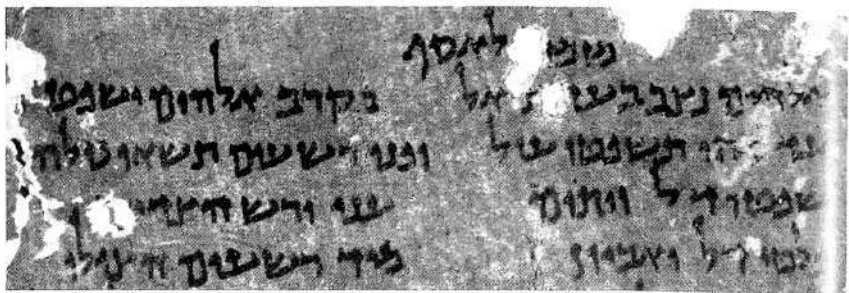 לאסף
אלהים נצב אל בקרב אלהים ישפט
תשפטו עול ופני רשעים תשאו סלה
שפטו דל ויתום עני ורש
פלטו דל ואביון מיד רשעים הצילו